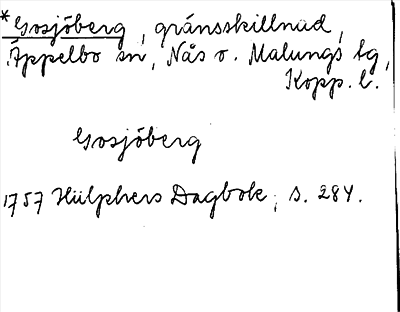 *Gosjöberg, gränsskillnad,
Äppelbo sn, Nås o. Malungs tg,
Kopp. l.
Gosjöberg
1757 Hülphers Dagbok, s. 284.